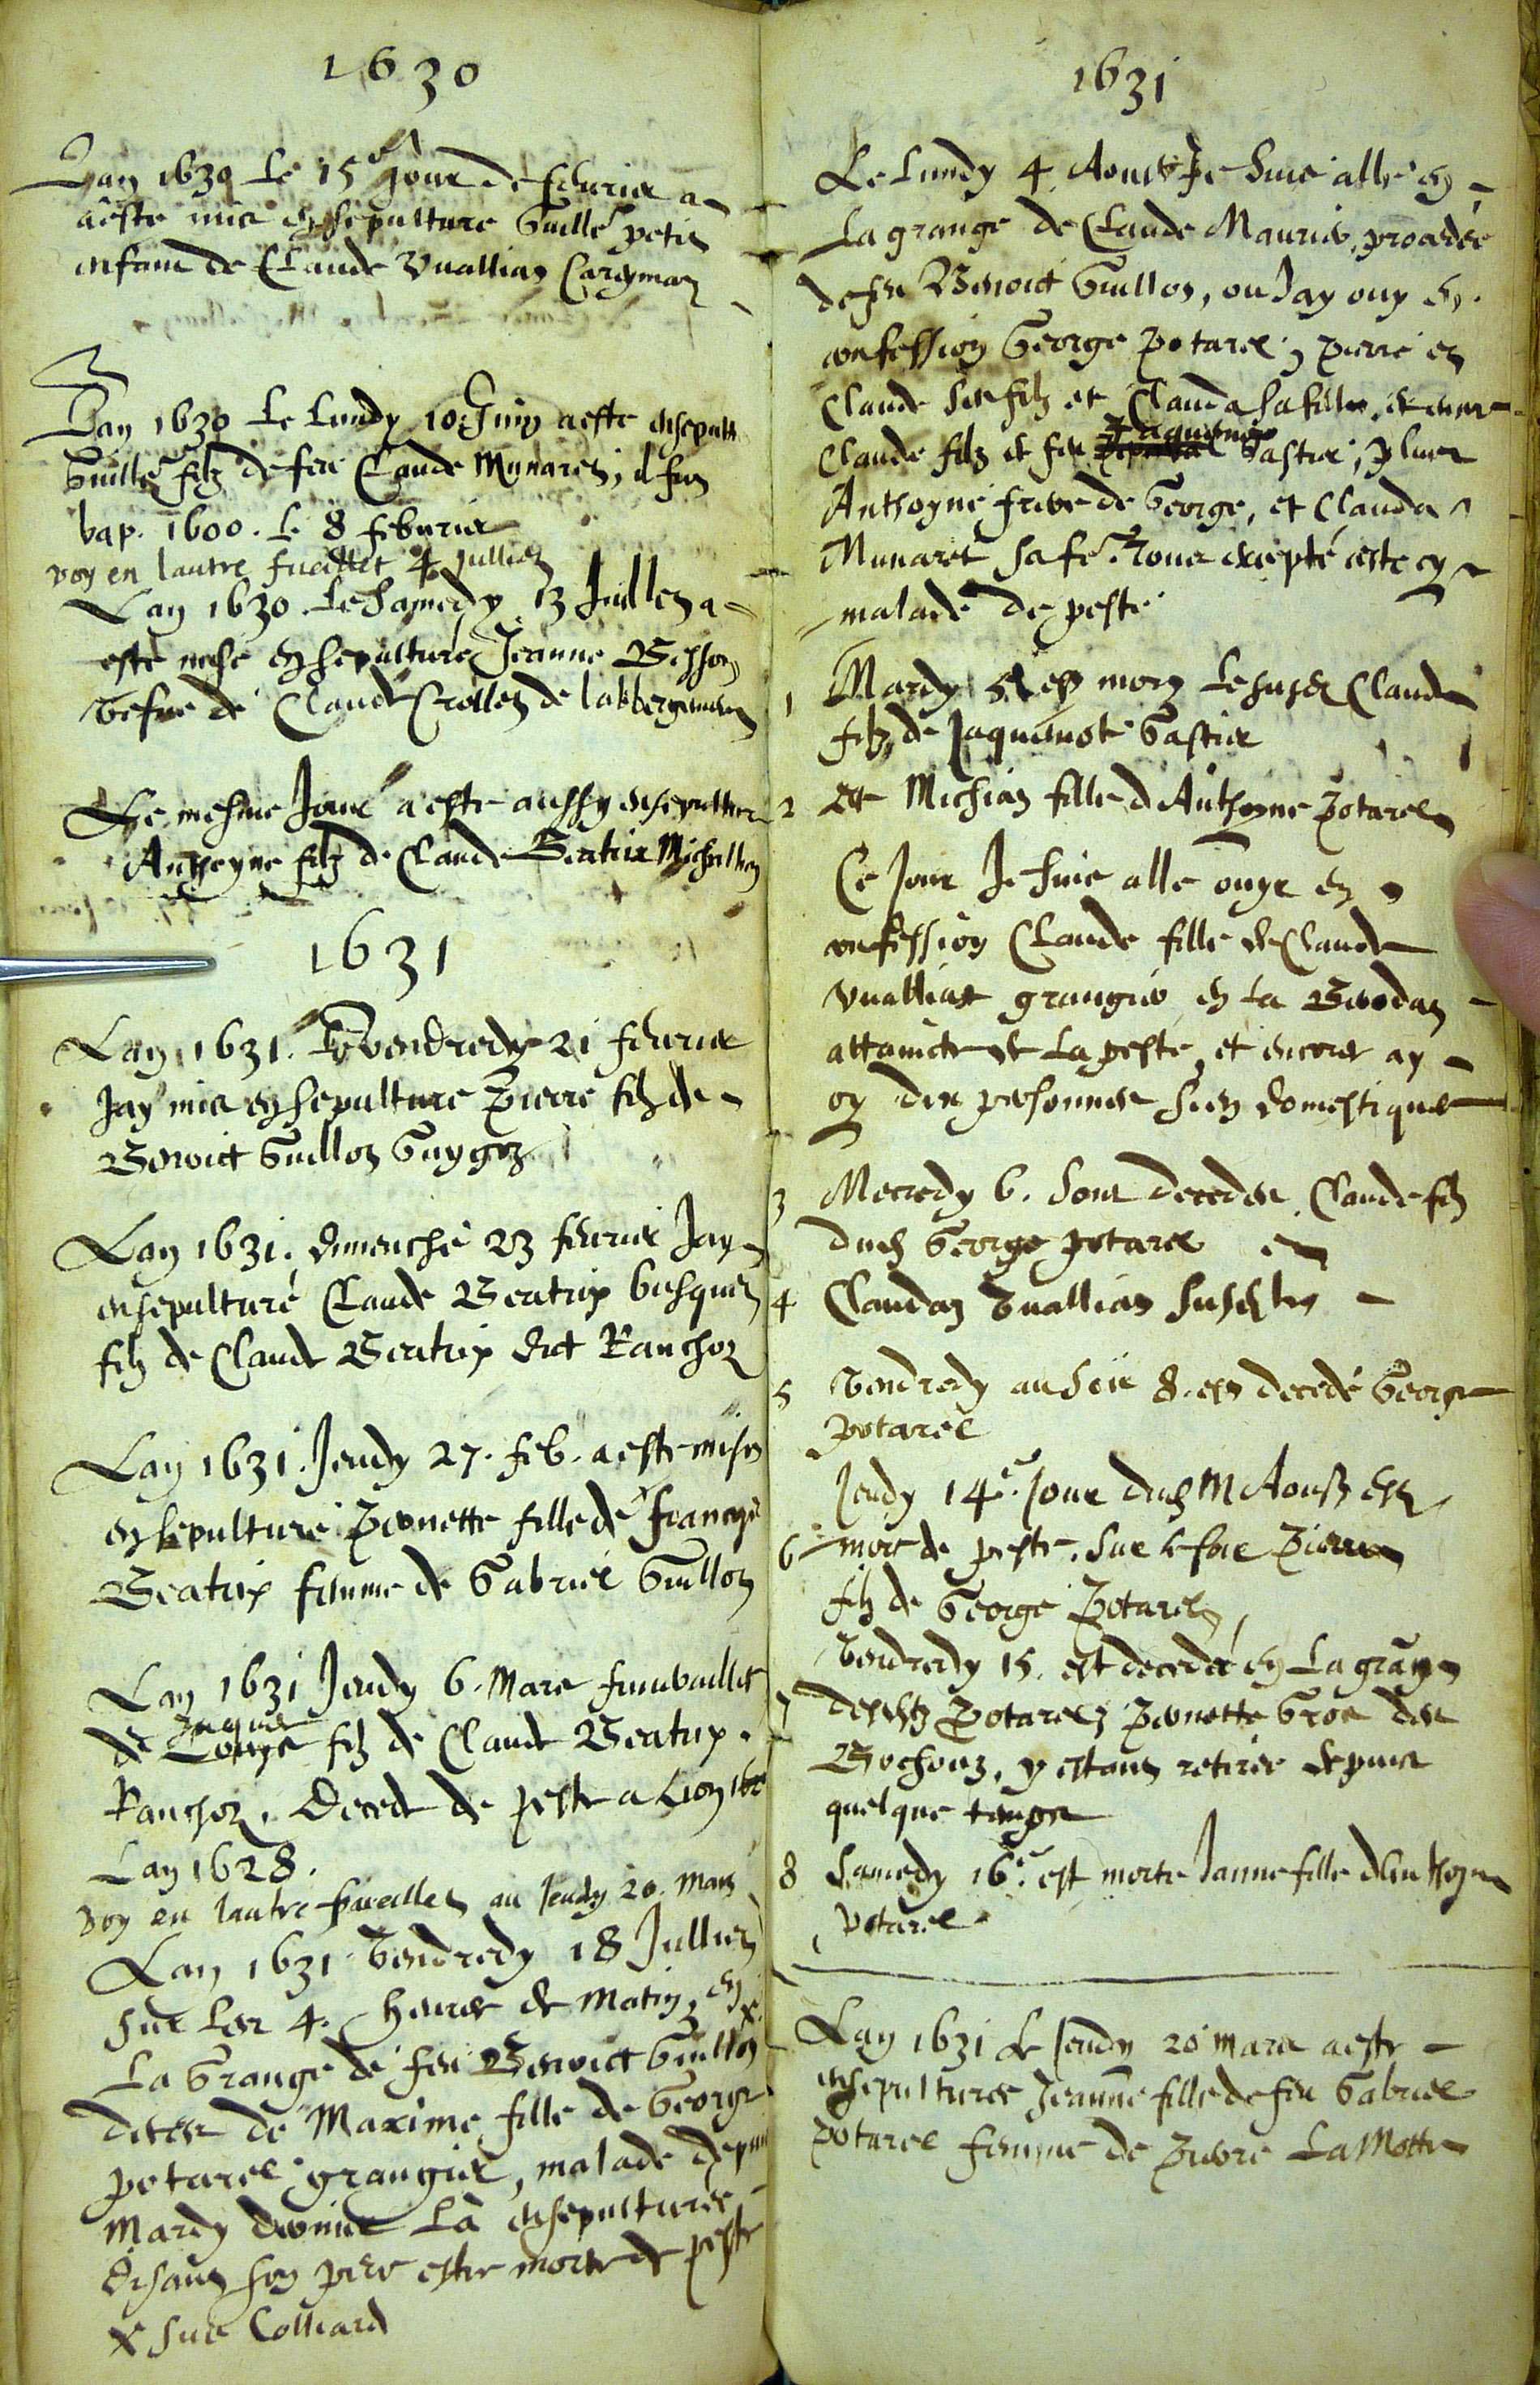 1630
Lan 1630 Le 15e Jour de feburier a
a este mis en sepulture Guille petit
enfant de Claude Vuallian
Lan 1630 Le Lundy 10 Juin a este ensepult
Guille filz de feu Claude Munaret, il fut
bap. 1600. Le 8 feburier
voy en lautre fueillet 4 Juillet
Lan 1630. Le Samedy 13 Juillet a
este mise en sepulture Jeanne Besson
vefve de Claude Crollet de labbergement
Le mesme Jour a este aussy ensepulturé
Anthoyne filz de Claude Beatrix Michallet
1631
Lan 1631. Le Vendredy 21 feburier
Jay mis en sepulture Pierre filz de
Benoict Guillon Guygoz
Lan 1631. dimenche 23 feburier Jay
ensepulturé Claude Beatrix busquet
filz de Claude Beatrix dict Ranchoz
Lan 1631. Jeudy 27. feb. a este mise
en sepulture Pernette fille de françois
Beatrix femme de Gabriel Guillon
Lan 1631 Jeudy 6. Mars
de Jaques filz de Claude Beatrix.
Ranchoz. Decede de peste a Lion
Lan 1628.
voy en lautre fueillet au Jeudy 20. Mars
Lan 1631 Vendredy 18 Juillet
sur les 4. heures de Matin, en x
La Grange de feu Benoict Guillon
deces de Maxime fille de George
potarel grangier, malade depuis
Mardy dernier La ensepulturée
disant son pere estre morte de peste
x sur Colliard
1631
Le Lundy 4. Aoust Je suis allé en
La grange de Claude Maurier, procedée
de feu Benoict Guillon, ou Jay ouy en
confession George potarel, pierre et
Claude ses filz et Clauda sa fille, et
Claude filz de feu Jaquemot Gastier, plus
Anthoyne frere de George, et Clauda
Munaret sa fe. Tous excepté ceste cy
malade de peste
1 Mardy 5 est mort Le susd Claude
filz de Jaquemot Gastier
2 Et Michian fille d Anthoyne Potarel
Ce Jour Je suis allé ouyr en
confession Claude fille de Claude
Vuallian grangier en la
attaincte de La peste, et encores ay
oy dix personnes ses domestiques
3 Mecredy 6. Sont decedes Claude filz
dud George potarel et
4 Claudaz Vuallian susd
5 Vendredy au soir 8. est decedé George
potarel
Jeudy 14e Jour dud M Aoust est
6 mort de peste. sur le soir Pierre
filz de George Potarel,
Vendredy 15. est decedée en La grange
7 desdtz Potarel, Pernette Gros des
Bochouz, y estant retirée depuis
quelque temps
8 Samedy 16e est morte Janne fille dAnthoyne
Potarel
Lan 1631 Le Jeudy 20 mars a este
ensepulturée Jeanne fille de feu Gabriel
Potarel femme de Pierre La Motte